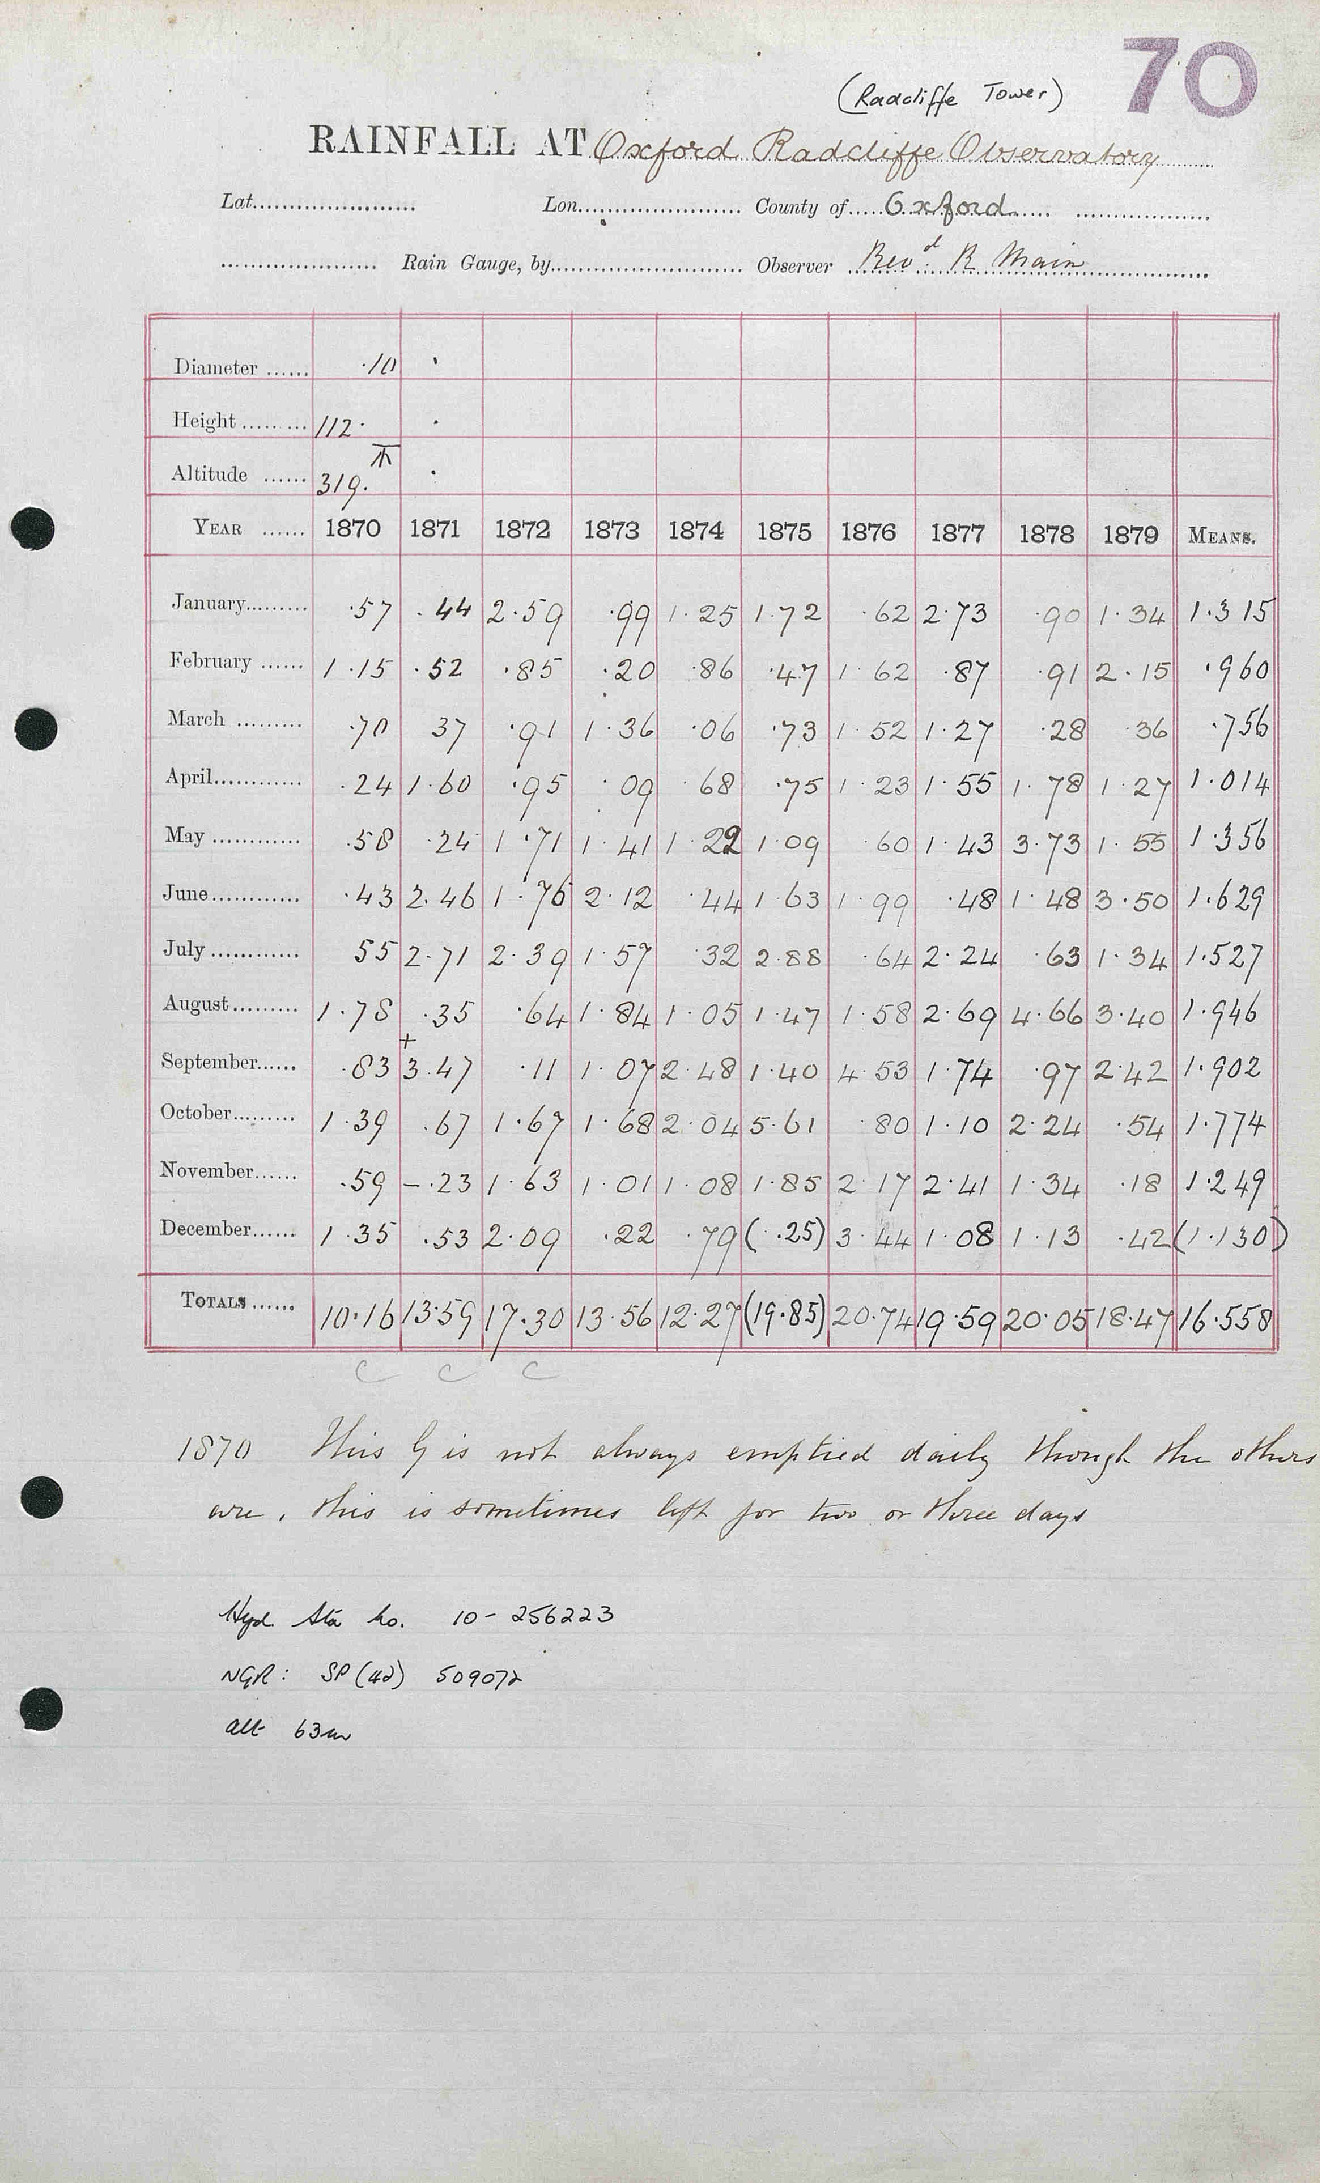 70
(Radcliffe Tower)
RAINFALL AT Oxford Radcliffe Observatory
Lat...................... Lon....................... County of..... Oxford
...................... Rain Gauge, by........................... Observer Revd. R Main
Diameter ...... ·10 ·
Height ......... 112· ·
Altitude ...... 319. ·
YEAR ...... 1870 1871 1872 1873 1874 1875 1876 1877 1878 1879 MEANS.
January......... ·57 .44 2·59 ·99 1·25 1·72 ·62 2·73 ·90 1·34 1·315
February ...... 1·15 ·52 ·85 ·20 ·86 ·47 1·62 ·87 ·91 2·15 ·960
March ......... ·70 37 ·91 1·36 ·06 ·73 1·52 1·27 ·28 ·36 ·756
April............ ·24 1·60 ·95 ·09 ·68 ·75 1·23 1·55 1·78 1·27 1·014
May ............ ·58 ·24 1·71 1·41 1·22 1·09 ·60 1·43 3·73 1·55 1·356
June............ ·43 2.46 1·76 2·12 ·44 1·63 1·99 ·48 1·48 3·50 1·629
July ............ 55 2·71 2·39 1·57 ·32 2·88 ·64 2·24 ·63 1·34 1·527
August......... 1·78 .35 ·64 1·84 1·05 1·47 1·58 2·69 4·66 3·40 1·946
September...... ·83 +3·47 ·11 1·07 2·48 1·40 4·53 1·74 ·97 2·42 1·902
October......... 1·39 .67 1·67 1·68 2·04 5·61 ·80 1·10 2·24 ·54 1·774
November...... .59 –.23 1·63 1·01 1·08 1·85 2·17 2·41 1·34 ·18 1·249
December...... 1·35 .53 2·09 ·22 ·79 (.25) 3·44 1·08 1·13 ·42 (1·130)
TOTALS ...... 10·16 13·59 17·30 13·56 12·27 (19·85) 20·74 19·59 20·05 18·47 16·558
C C C
1870 This G is not always emptied daily though the others
are, this is sometimes left for two or three days
Hyd. Sta No. 10-256223
NGR: SP (42) 509072
alt 63m